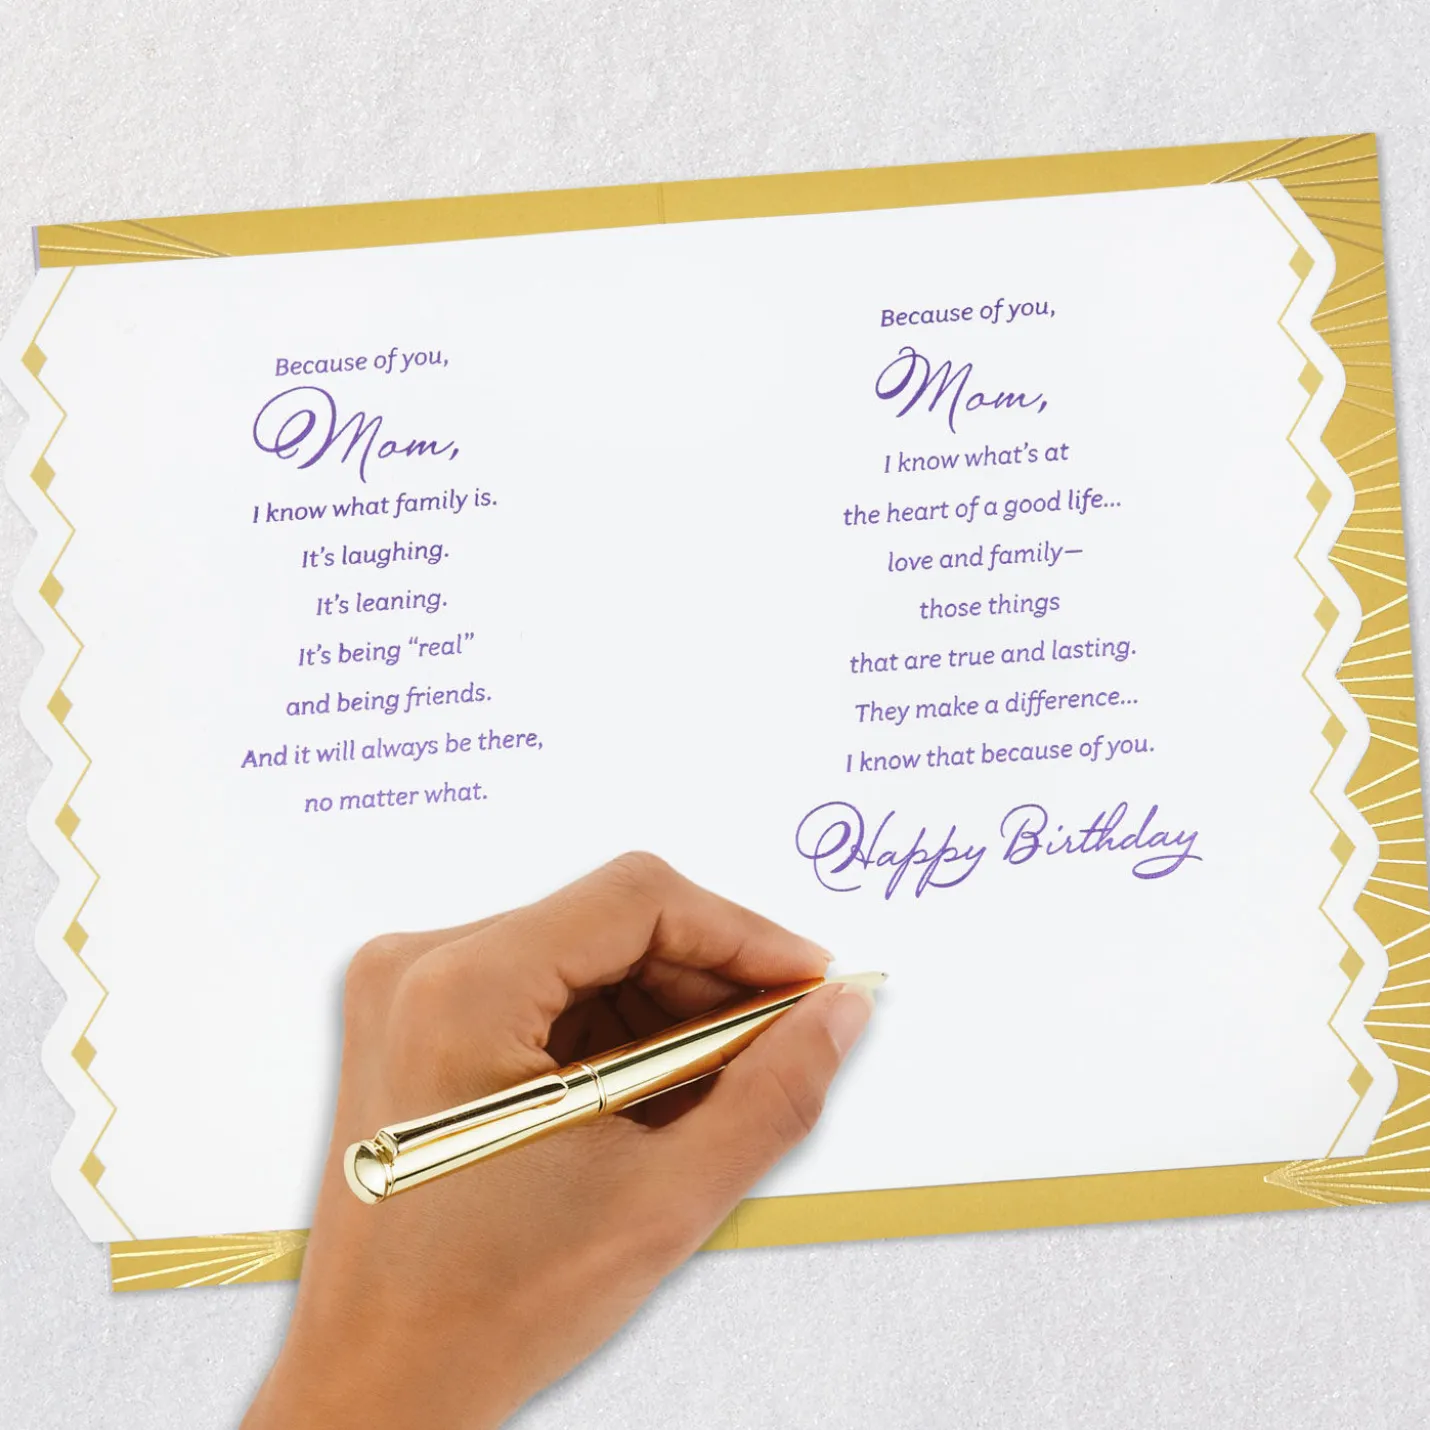 Because of you,
Mom,
I know what family is.
It's laughing.
It's leaning.
It's being “real”
and being friends.
And it will always be there,
no matter what.
Because of you,
Mom,
I know what's at
the heart of a good life...
love and family—
those things
that are true and lasting.
They make a difference...
I know that because of you.
Happy Birthday